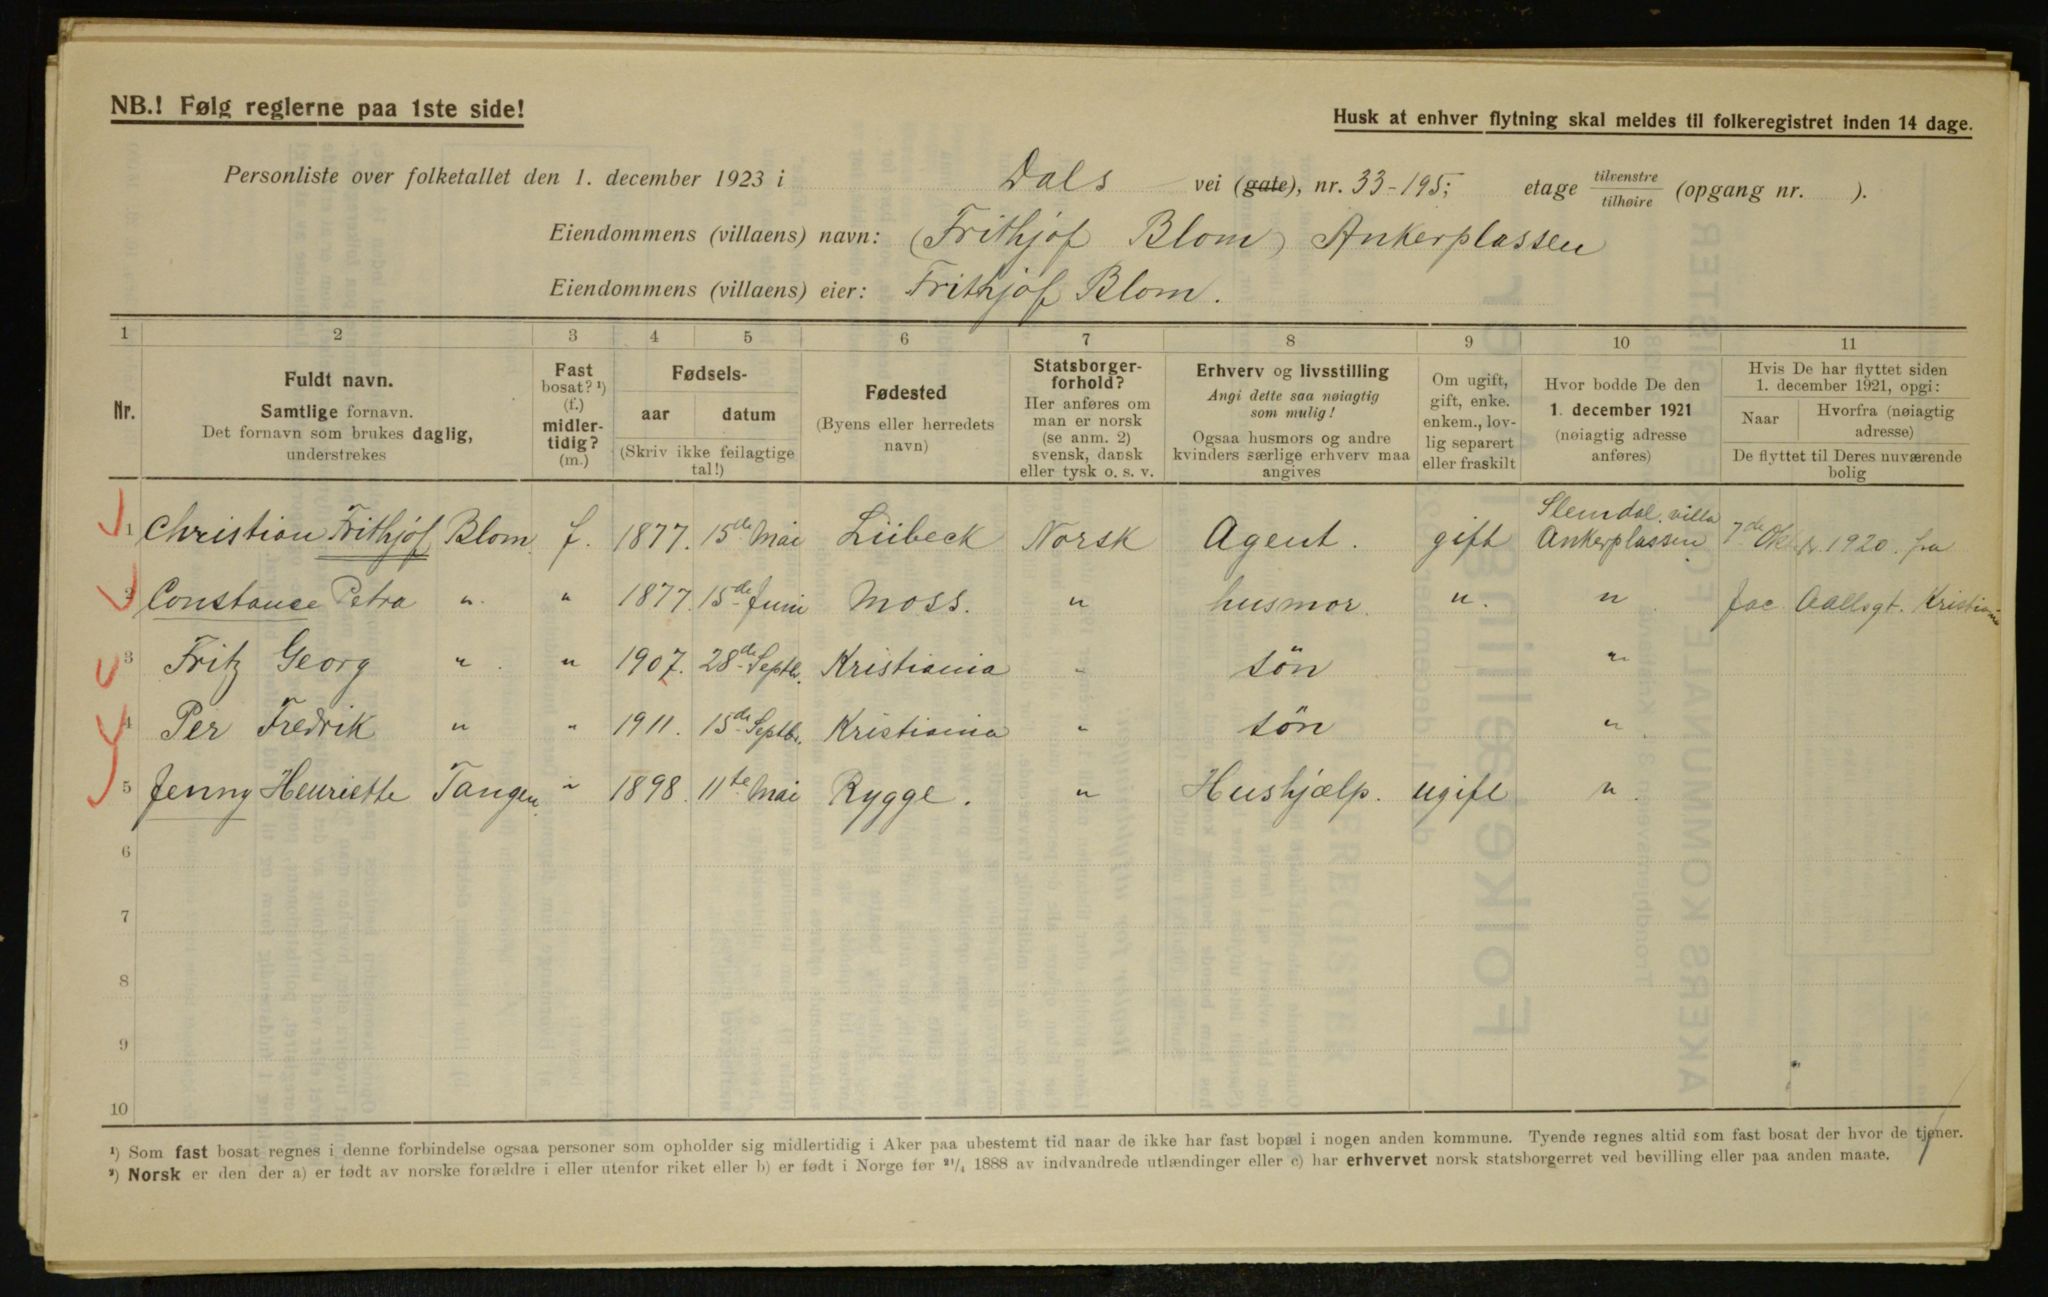 NB.! Følg reglerne paa 1ste side!
Husk at enhver flytning skal meldes til folkeregistret inden 14 dage.
Personliste over folketallet den 1. december 1923 i Dals vei (gate), nr. 33-195; etage tilvenstre/tilhøire (opgang nr. ).
Eiendommens (villaens) navn: (Frithjof Blom) Ankerplassen
Eiendommens (villaens) eier: Frithjof Blom.
1 2 3 4 5 6 7 8 9 10 11
Nr.
Fuldt navn.
Samtlige fornavn.
Det fornavn som brukes daglig,
understrekes
Fast
bosat? ¹)
(f.)
midler-
tidig?
(m.)
Fødsels-
aar datum
(Skriv ikke feilagtige
tal!)
Fødested
(Byens eller herredets
navn)
Statsborger-
forhold?
Her anføres om
man er norsk
(se anm. 2)
svensk, dansk
eller tysk o. s. v.
Erhverv og livsstilling
Angi dette saa nøiagtig
som mulig!
Ogsaa husmors og andre
kvinders særlige erhverv maa
angives
Om ugift,
gift, enke.
enkem., lov-
lig separert
eller fraskilt
Hvor bodde De den
1. december 1921
(nøiagtig adresse
anføres)
Hvis De har flyttet siden
1. december 1921, opgi:
Naar Hvorfra (nøiagtig
adresse)
De flyttet til Deres nuværende
bolig
1 Christian Frithjof Blom. f. 1877. 15de Mai Lübeck Norsk Agent. gift Slemdal. villa Ankerplassen 7de Oktr. 1920. fra
2 Constance Petra " " 1877. 15de Juni Moss. " husmor. " " Jac. Aallsgt. Kristiania
3 Fritz Georg " " 1907. 28de Septbr. Kristiania " søn "
4 Per Fredrik " " 1911. 15de Septbr. Kristiania " søn "
5 Jenny Henriette Tangen. " 1898. 11te Mai Rygge. " Hushjælp. ugift "
6
7
8
9
10
¹) Som fast bosat regnes i denne forbindelse ogsaa personer som opholder sig midlertidig i Aker paa ubestemt tid naar de ikke har fast bopæl i nogen anden kommune. Tyende regnes altid som fast bosat der hvor de tjener.
²) Norsk er den der a) er født av norske forældre i eller utenfor riket eller b) er født i Norge før ²¹/₄ 1888 av indvandrede utlændinger eller c) har erhvervet norsk statsborgerret ved bevilling eller paa anden maate.